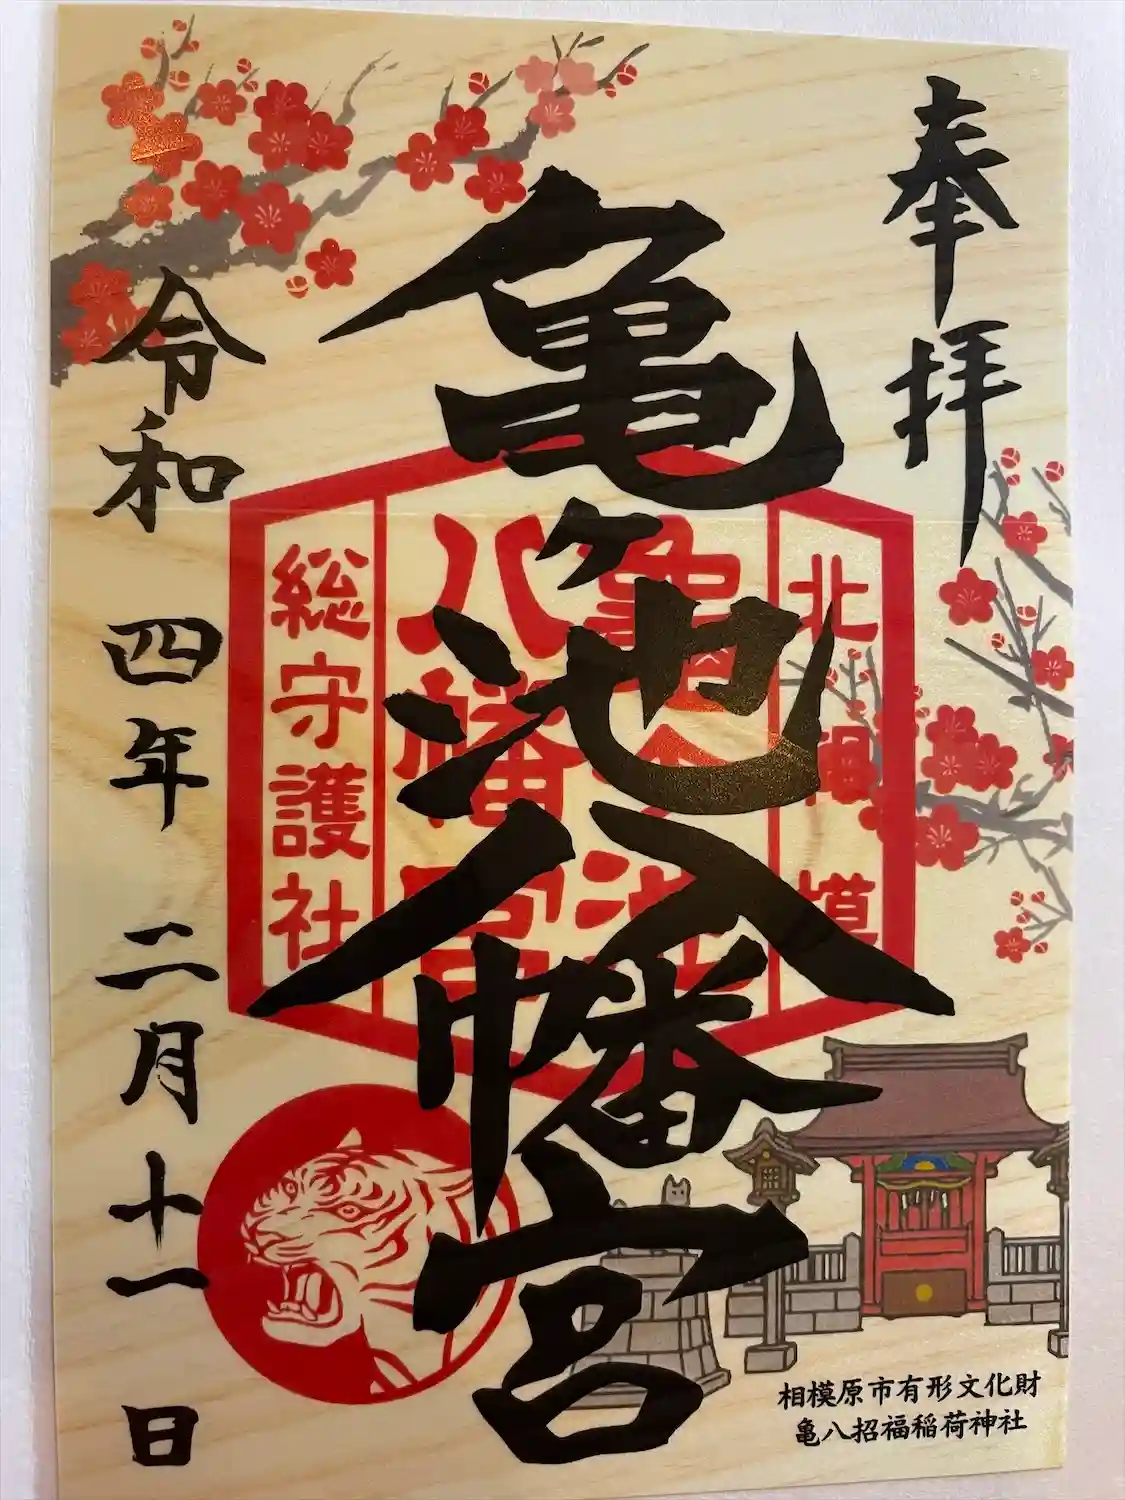 奉拝
亀ヶ池八幡宮
令和四年二月十一日
北相模
亀ヶ池
八幡宮
総守護社
相模原市有形文化財
亀八招福稲荷神社